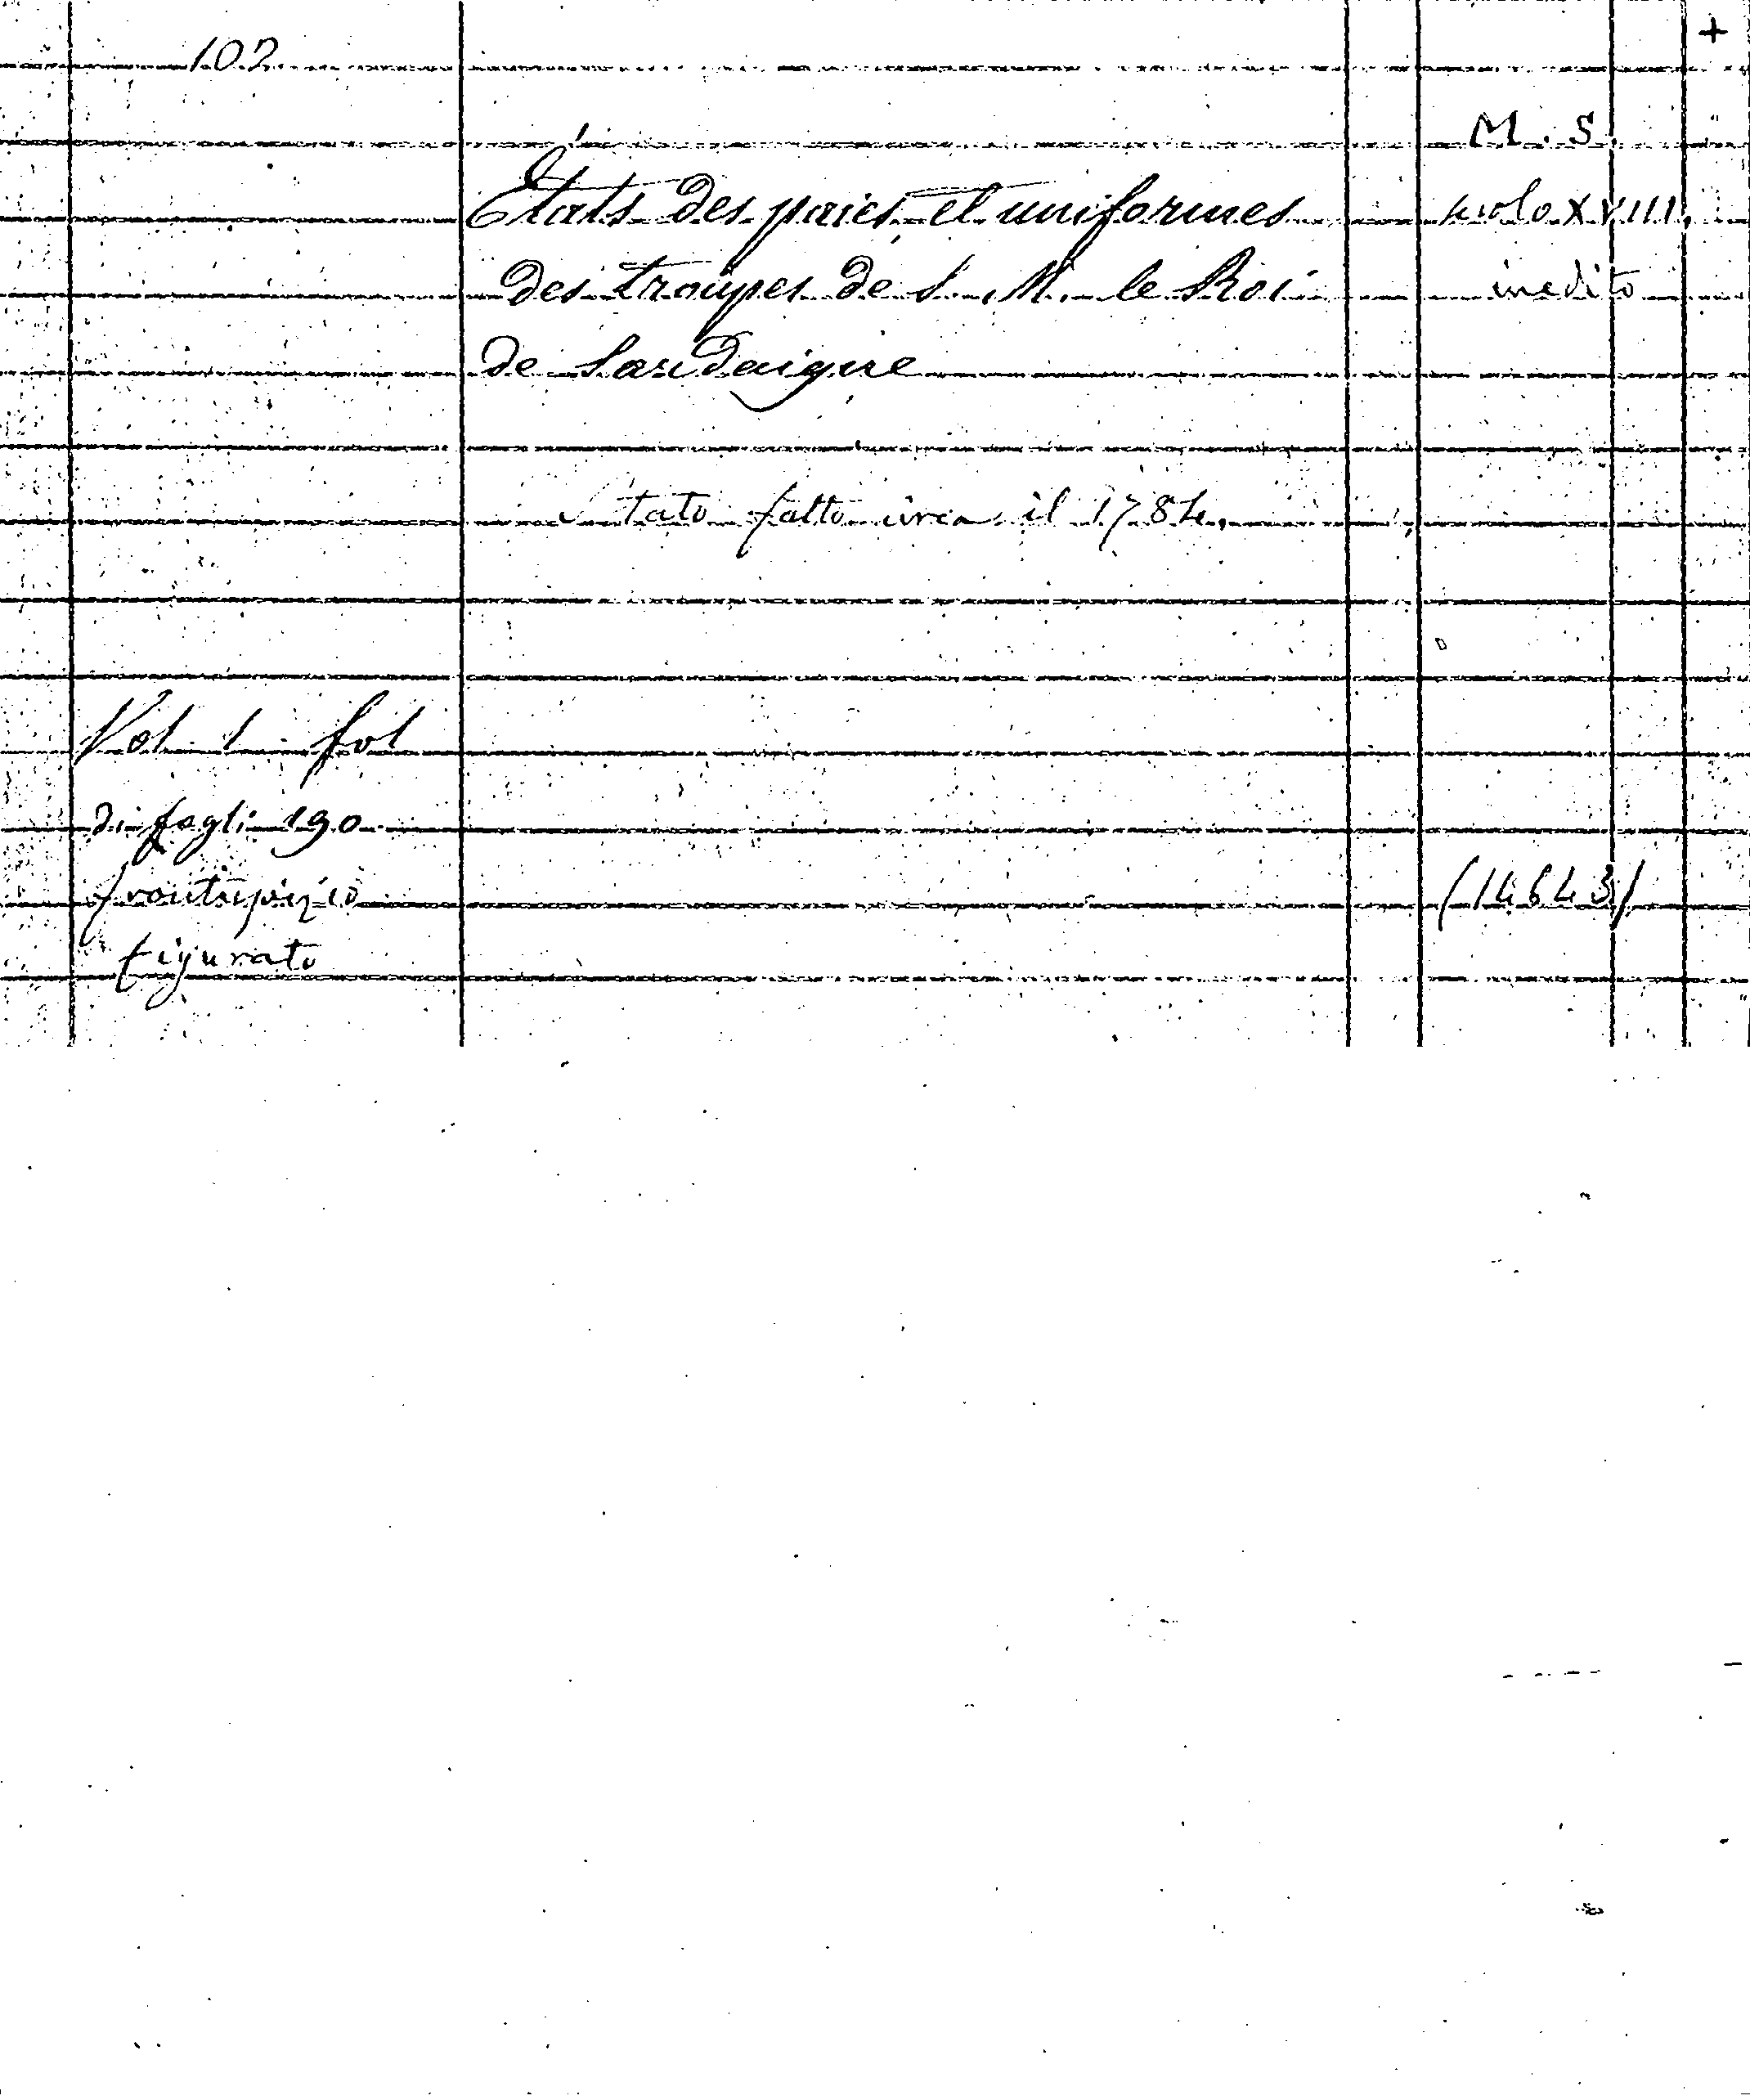 +
102
M. S.
États des paies et uniformes
secolo XVIII
des troupes de S. M. le Roi
inedito
de Sardaigne
Stato fatto circa il 1784.
Vol. 1 fol
di fogli 190
frontispizio
(14643)
figurato